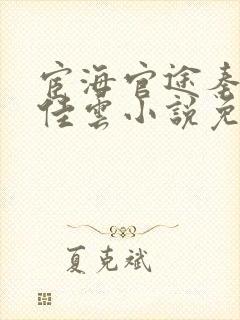 宦海官途秦
佳雲小說免
夏克斌